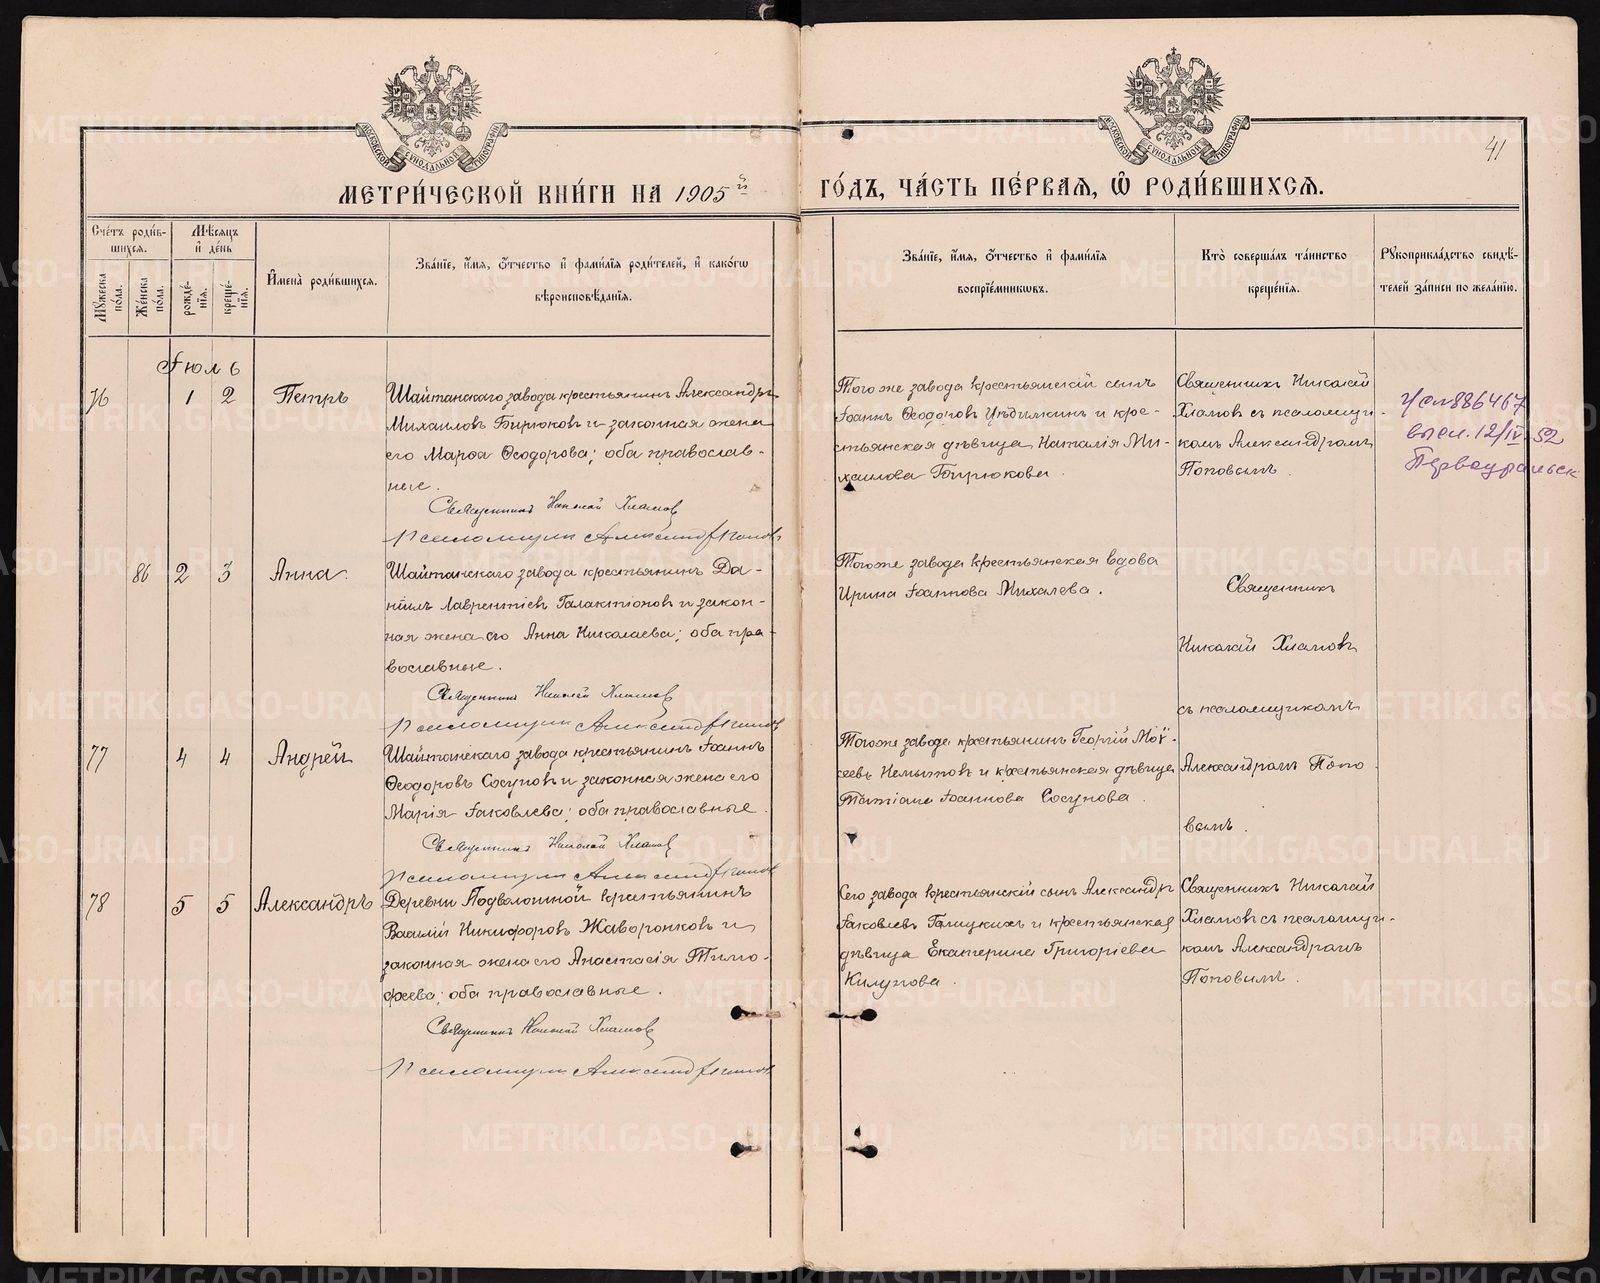 МЕТРИ́ЧЕСКОЙ КНИ́ГИ НА 1905 й
ГО́ДЪ, ЧА́СТЬ ПЕ́РВАЯ, Ѡ РОДИ́ВШИХСѦ.
41
Сче́тъ роди́вшихсѧ.
Мꙋжеска по́ла.
Же́нска по́ла.
Мѣ́сѧцъ и де́нь
рожде́нїѧ.
креще́нїѧ.
Имена̀ роди́вшихсѧ.
Зва́нїе, и́мѧ, ѻ́тчество и фами́лїѧ роди́телей, и како́гѡ
вѣроисповѣ́данїѧ.
Зва́нїе, и́мѧ, ѻ́тчество и фами́лїѧ
воспрїе́мникѡвъ.
Кто̀ соверша́лъ та́инство
креще́нїѧ.
Рꙋкоприкла́дство свидѣ́-
телей за́писи по жела́нїю.
Іюль
76 1 2 Петръ
Шайтанскаго завода крестьянинъ Александръ
Михаиловъ Бирюковъ и законная жена
его Марѳа Ѳеодорова; оба православ-
ные.
Священникъ Николай Хламовъ
Псаломщикъ Александръ Поповъ
Того же завода крестьянскій сынъ
Іоаннъ Ѳеодоровъ и кре-
стьянская дѣвица Наталія Ми-
хаилова Бирюкова.
Священникъ Николай
Хламовъ съ псаломщи-
комъ Александромъ
Поповымъ.
886467
высл. 12/IV 52
Первоуральск
86 2 3 Анна.
Шайтанскаго завода крестьянинъ Да-
ніилъ Лаврентіевъ Галактіоновъ и закон-
ная жена его Анна Николаева; оба пра-
вославные.
Священникъ Николай Хламовъ
Псаломщикъ Александръ Поповъ
Того же завода крестьянская вдова
Ирина Іоаннова Михалева.
Священникъ
Николай Хламовъ
съ псаломщикомъ
Александромъ Попо-
вымъ.
77 4 4 Андрей
Шайтанскаго завода крестьянинъ Іоаннъ
Ѳеодоровъ Сосуновъ и законная жена его
Марія Іаковлева; оба православные.
Священникъ Николай Хламовъ
Псаломщикъ Александръ Поповъ
Того же завода крестьянинъ Георгій Мої-
сеевъ Немытовъ и крестьянская дѣвица
Татіана Іоаннова Сосунова.
78 5 5 Александръ
Деревни Подволошной крестьянинъ
Василій Никифоровъ Жаворонковъ и
законная жена его Анастасія Тимо-
феева; оба православные.
Священникъ Николай Хламовъ
Псаломщикъ Александръ Поповъ
Сего завода крестьянскій сынъ Александръ
Іаковлевъ Галицкихъ и крестьянская
дѣвица Екатерина Григоріева
Килунова.
Священникъ Николай
Хламовъ съ псаломщи-
комъ Александромъ
Поповымъ.
METRIKI.GASO-URAL.RU